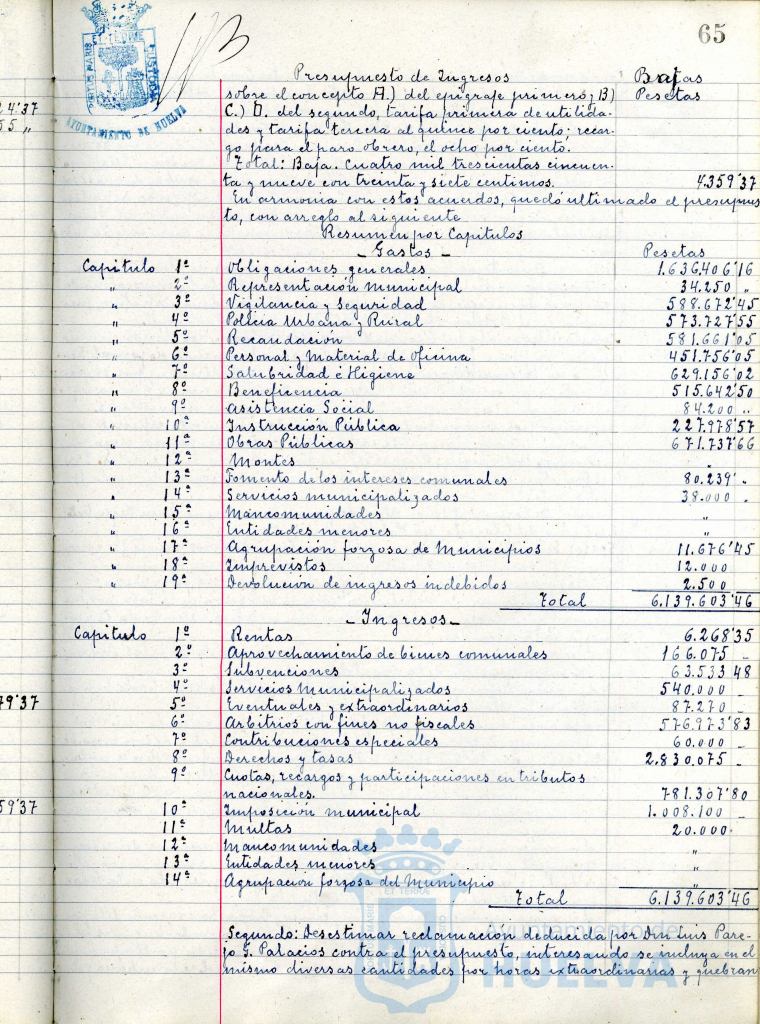 65
Presupuesto de Ingresos Bajas
sobre el concepto A.) del epigrafe primero; B) Pesetas
C.) D. del segundo, tarifa primera de utilida-
des y tarifa tercera al quince por ciento; recar-
go para el paro obrero, el ocho por ciento.
Total: Baja. Cuatro mil trescientas cincuen-
ta y nueve con treinta y siete centimos. 4.359'37
En armonia con estos acuerdos, quedó ultimado el presupues
to, con arreglo al siguiente
Resumen por Capitulos
- Gastos - Pesetas
Capitulo 1º Obligaciones generales 1.636.406'16
" 2º Representación municipal 34.250 "
" 3º Vigilancia y Seguridad 588.672'45
" 4º Policia Urbana y Rural 573.727'55
" 5º Recaudación 581.661'05
" 6º Personal y Material de oficina 451.756'05
" 7º Salubridad é Higiene 629.156'02
" 8º Beneficencia 515.642'50
" 9º Asistencia Social 84.200 "
" 10º Instrucción Pública 227.978'57
" 11º Obras Públicas 671.737'66
" 12º Montes "
" 13º Fomento de los intereses comunales 80.239' "
" 14º Servicios municipalizados 38.000 "
" 15º Mancomunidades "
" 16º Entidades menores "
" 17º Agrupación forzosa de Municipios 11.676'45
" 18º Imprevistos 12.000
" 19º Devolución de ingresos indebidos 2.500
Total 6.139.603'46
- Ingresos -
Capitulo 1º Rentas 6.268'35
2º Aprovechamiento de bienes comunales 166.075 -
3º Subvenciones 63.533 48
4º Servicios Municipalizados 540.000 -
5º Eventuales y extraordinarios 87.270 -
6º Arbitrios con fines no fiscales 576.973'83
7º Contribuciones especiales 60.000 -
8º Derechos y tasas 2.830.075 -
9º Cuotas, recargos y participaciones en tributos
nacionales. 781.307'80
10º Imposición municipal 1.008.100 -
11º Multas 20.000.
12º Mancomunidades "
13º Entidades menores "
14º Agrupación forzosa del Municipio "
Total 6.139.603'46
Segundo: Desestimar reclamación deducida por Don Luis Pare-
jo G. Palacios contra el presupuesto, interesando se incluya en el
mismo diversas cantidades por horas extraordinarias y quebran
AYUNTAMIENTO DE HUELVA
Ayuntamiento de
HUELVA
4'37
55 "
79'37
59'37